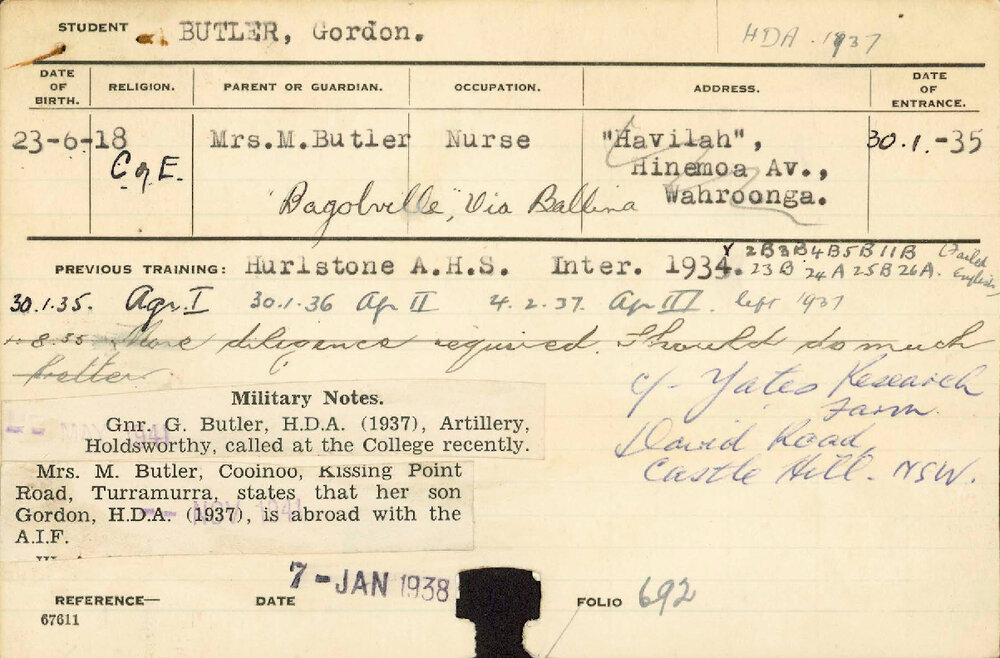 STUDENT BUTLER, Gordon. HDA. 1937
DATE OF BIRTH. RELIGION. PARENT OR GUARDIAN. OCCUPATION. ADDRESS. DATE OF ENTRANCE.
23-6-18 C of E. Mrs.M.Butler Nurse "Havilah", 30.1.-35
Hinemoa Av.,
Wahroonga.
"Bagotville", Via Ballina
PREVIOUS TRAINING: Hurlstone A.H.S. Inter. 1934. 2B3B4B5B11B
23B 24A 25B 26A. (Failed English)
30.1.35. Agr. I 30.1.36 Ag II 4.2.37. Ag III. left 1937
8.35 More diligence required. Should do much
better.
c/- Yates Research
Farm.
David Road,
Castle Hill. NSW.
Military Notes.
Gnr. G. Butler, H.D.A. (1937), Artillery,
Holdsworthy, called at the College recently.
MAY 1941
Mrs. M. Butler, Cooinoo, Kissing Point
Road, Turramurra, states that her son
Gordon, H.D.A. (1937), is abroad with the
A.I.F.
NOV 1941
7-JAN 1938
REFERENCE— DATE FOLIO 692
67611